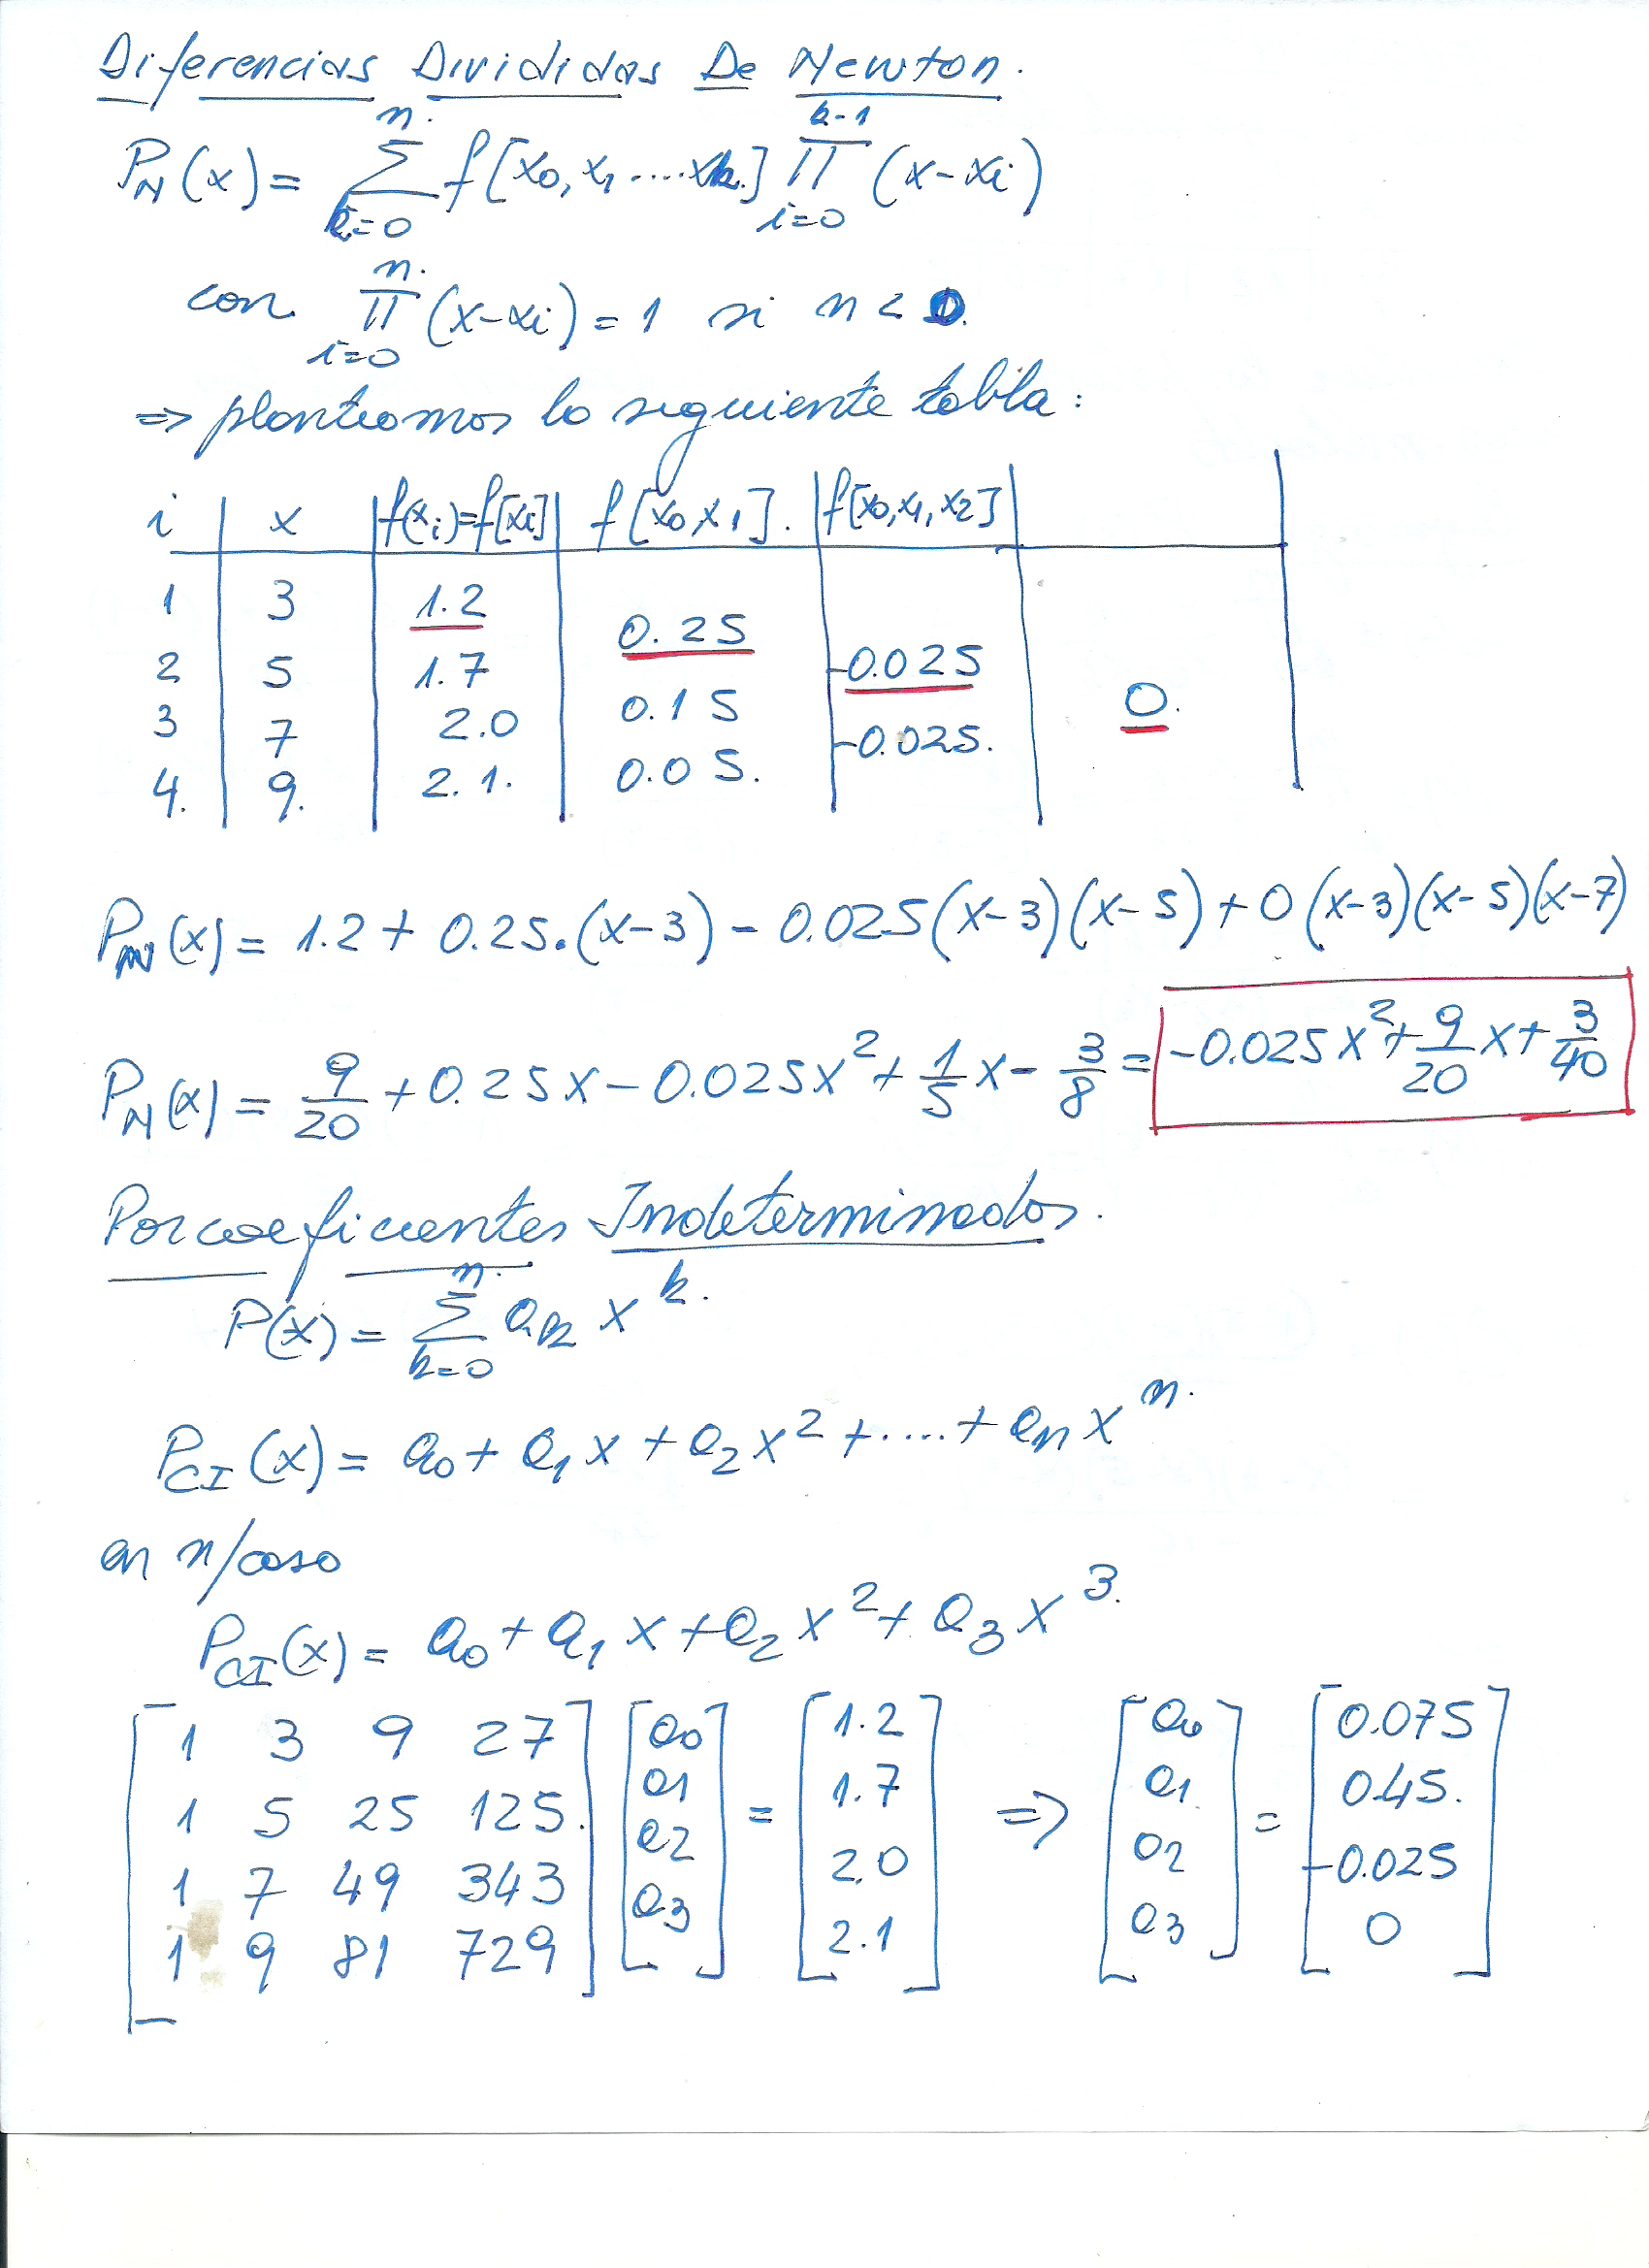 Diferencias Divididas De Newton.
P_N(x) = \sum_{k=0}^{n} f[x_0, x_1 .... x_k] \prod_{i=0}^{k-1} (x-x_i)
con \prod_{i=0}^{n} (x-x_i) = 1 si n < 0.
=> planteamos la siguiente tabla:
i | x | f(x_i)=f[x_i] | f[x_0,x_1]. | f[x_0,x_1,x_2] |
1 3 1.2
0.25
2 5 1.7 -0.025
3 7 2.0 0.15 0.
-0.025.
4. 9. 2.1. 0.05.
P_N(x) = 1.2 + 0.25.(x-3) - 0.025(x-3)(x-5) + 0(x-3)(x-5)(x-7)
P_N(x) = 9/20 + 0.25x - 0.025x^2 + 1/5 x - 3/8 = -0.025x^2 + 9/20 x + 3/40
Por coeficientes Indeterminados.
P(x) = \sum_{k=0}^{n} a_k x^k.
P_{CI}(x) = a_0 + a_1 x + a_2 x^2 + .... + a_n x^n.
en n/caso
P_{CI}(x) = a_0 + a_1 x + a_2 x^2 + a_3 x^3.
[1 3 9 27] [a0] = [1.2] => [a0] = [0.075]
[1 5 25 125.] [a1] [1.7] [a1] [0.45.]
[1 7 49 343] [a2] [2.0] [a2] [-0.025]
[1 9 81 729] [a3] [2.1] [a3] [0]